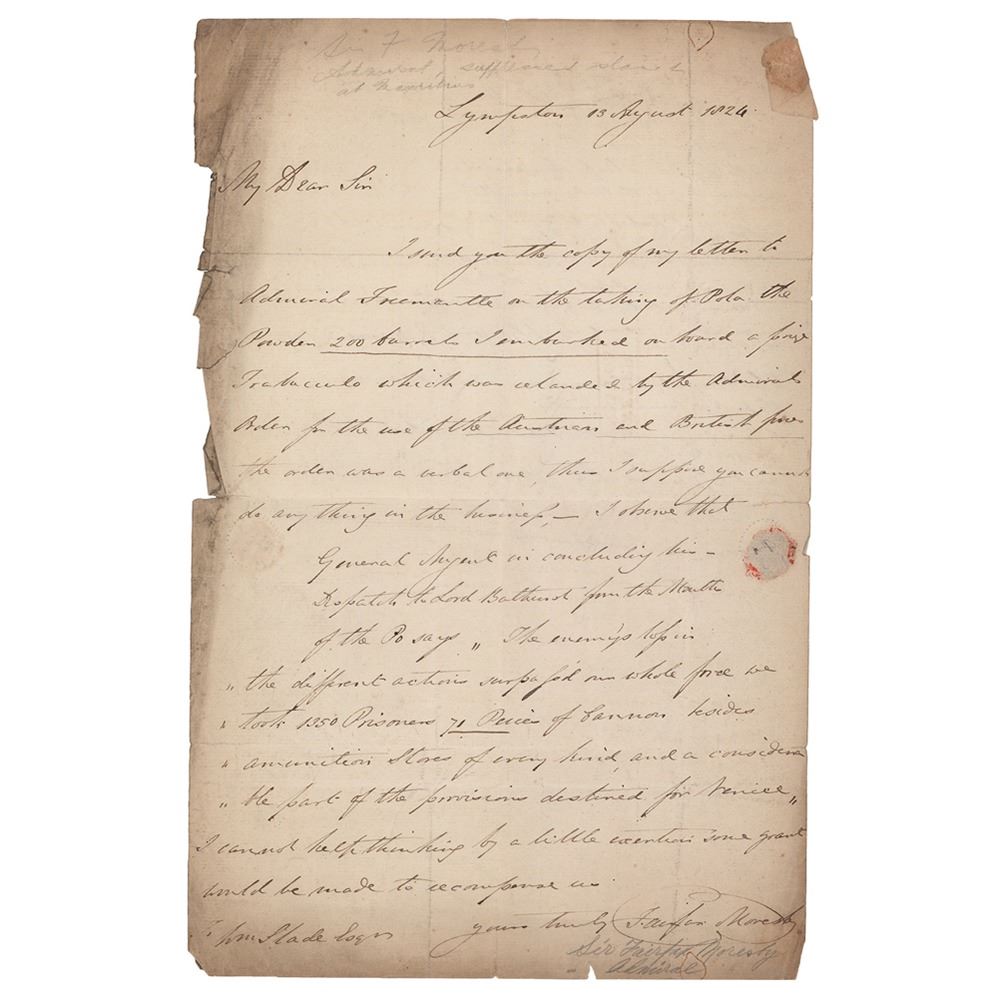 Sir F Moresby
Admiral, suppressed slavery
at Mauritius
Lympston 13 August 1824.
My Dear Sir
I send you the copy of my letter to
Admiral Freemantle on the taking of Pola the
Powder 200 barrels I embarked on board a prize
Trabaculo which was relanded by the Admirals
Order for the use of the Austrian and British forces
the order was a verbal one, thus I suppose you cannot
do any thing in the business, — I observe that
General Nugent in concluding his —
Dispatch to Lord Bathurst from the Mouth
of the Po says „ The enemys loss in
„ the different actions surpassed our whole force we
„ took 1350 Prisoners 71 Peices of Cannon besides
„ amunition Stores of every kind, and a considera
„ ble part of the provisions destined for Venice „
I cannot help thinking by a little exertion some grant
would be made to recompense us
yours truly Fairfax Moresby
Wm Slade Esqr
Sir Fairfax Moresby
„ Admiral